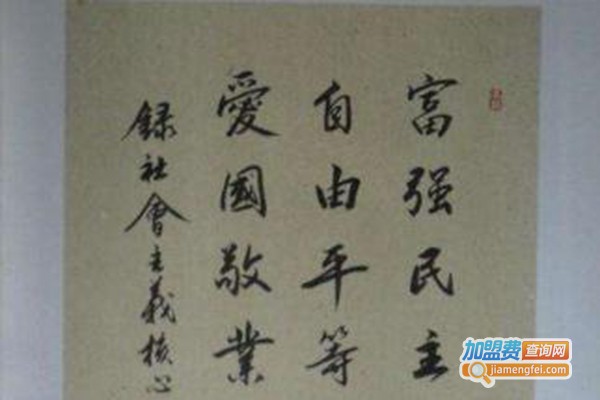 富强民主
自由平等
愛國敬業
録社會主義核心
加盟费查询网
jiamengfei.com